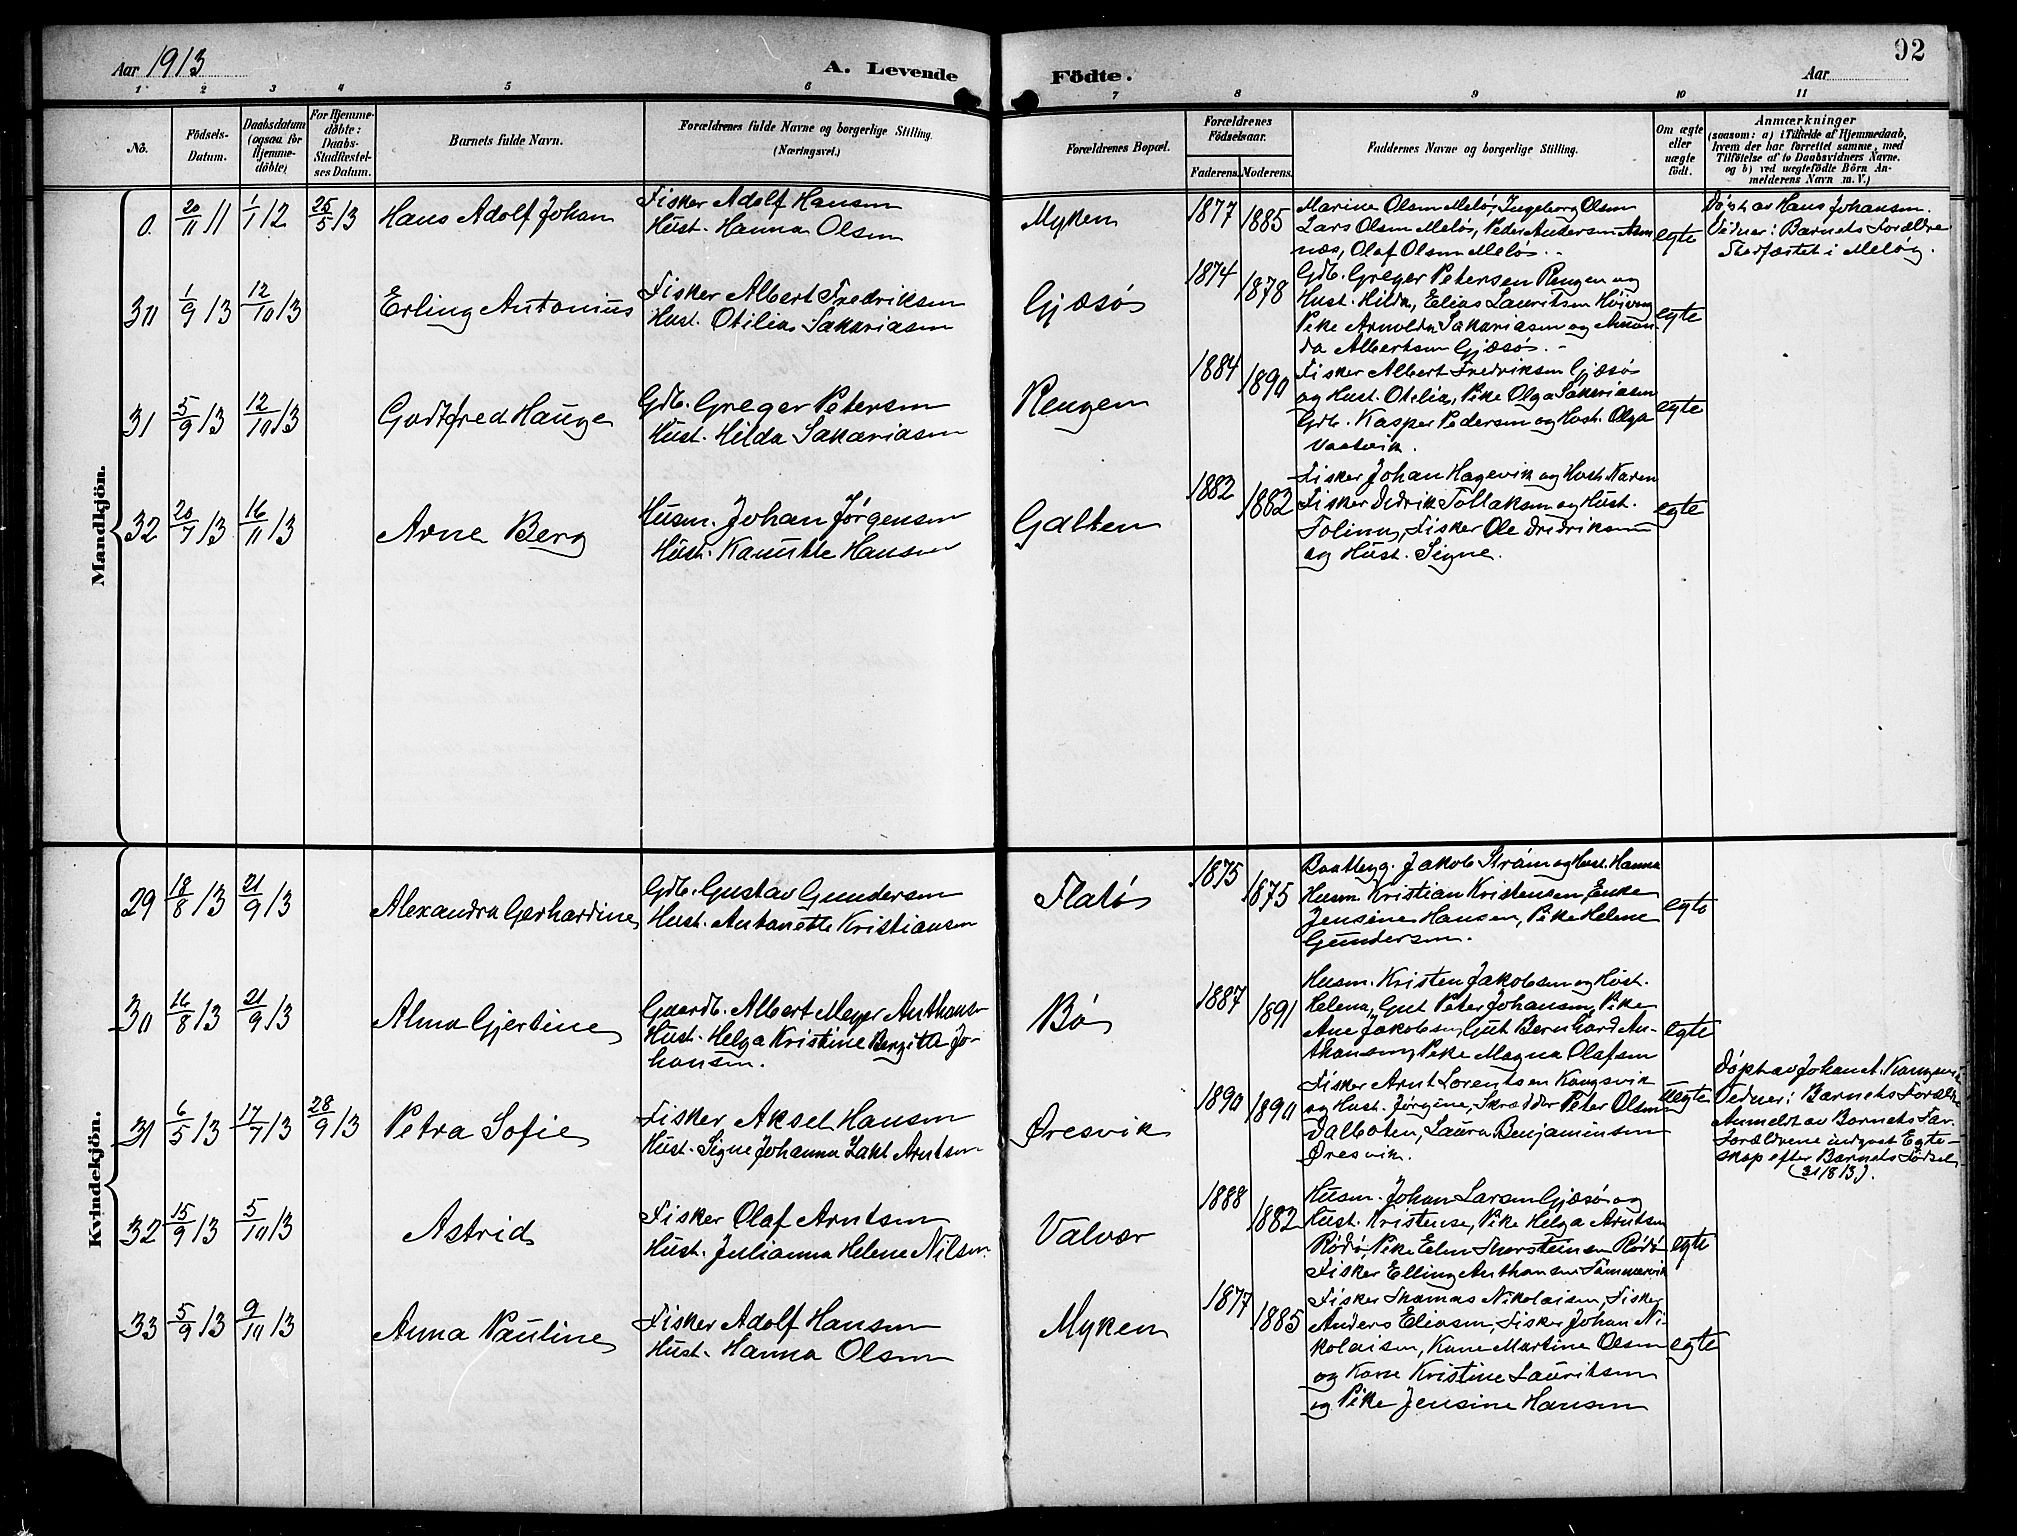 Aar 1913
A. Levende
Födte.
Aar
92
1 2 3 4 5 6 7 8 9 10 11
No.
Födsels-
Datum.
Daabsdatum
(ogsaa for
Hjemme-
døbte)
For Hjemme-
døbte:
Daabs-
Stadfæstel-
ses Datum.
Barnets fulde Navn.
Forældrenes fulde Navne og borgerlige Stilling.
(Næringsvei.)
Forældrenes Bopæl.
Forældrenes
Födselsaar.
Faderens. Moderens.
Faddernes Navne og borgerlige Stilling.
Om ægte
eller
uægte
født.
Anmærkninger
(saasom: a) i Tilfælde af Hjemmedaab,
hvem der har forrettet samme, med
Tilføielse af to Daabsvidners Navne.
og b) ved uægtefödte Börn An-
melderens Navn m. V.)
Mandkjön.
0. 20/11 11 1/1 12 25/5 13
Hans Adolf Johan
Fisker Adolf Hansen
Hust. Hanna Olsen
Myken
1877 1885
Marine Olsen Melø, Ingeborg Olsen
Lars Olsen Melø, Peder Andersen Asm
næs, Olaf Olsen Melø. -
egte
Døbt av Hans Johansen.
Vidner: Barnets Forældre
Stadfæstet i Meløy.
30 1/9 13 12/10 13
Erling Antonius
Fisker Albert Fredriksen
Hust. Otilia Sakariasen
Gjæsø
1874 1878
Gdb. Greger Petersen Rengen og
Hust. Hilda, Elias Lauritsen
Pike Arnolda Sakariasen og Aman-
da Albertsen Gjæsø. -
egte
31 5/9 13 12/10 13
Godtfred Hauge
Gdb. Greger Petersen
Hust. Hilda Sakariasen
Rengen
1884 1890
Fisker Albert Fredriksen Gjæsø
og Hust. Otilia, Pike Olga Sakariasen
Gdb. Kasper Pedersen og Hust. Olga
Vaatvik.
egte
32 20/7 13 16/11 13
Arne Berg
Husm. Johan Jørgensen
Hust. Kanutte Hansen
Galten
1882 1882
Fisker Johan Hagevik og Hust. Karen
Fisker Didrik Tollaksen og Hust.
Tolina, Fisker Ole Didriksen
og Hust. Signe.
egte
Kvindekjön.
29 18/8 13 21/9 13
Alexandra Gerhardine
Gdb. Gustav Gundersen
Hust. Antonette Kristiansen
Flatø
1875 1875
Baatbyg. Jakob Strøm og Hust. Hanna
Husm. Kristian Kristensen, Enke
Jensine Hansen, Pike Helene
Gundersen.
egte
30 16/8 13 21/9 13
Alma Gjertine
Gaardb. Albert Meyer Anthons-
Hust. Helga Kristine Bergitte Jo-
hansen.
Bø
1887 1891
Husm. Kristen Jakobsen og Hust.
Helena, Gut Peter Johansen, Pike
Ane Jakobsen, Gut Bernhard An-
thonsen, Pike Magna Olafsen
egte
31 6/5 13 17/7 13 28/9 13
Petra Sofie
Fisker Aksel Hansen
Hust. Signe Johanna Arntsen
Øresvik
1890 1890
Fisker Arnt Lorentsen Kongsvik
og Hust. Jørgine, Skrædder Peter Olsen
Dalboten, Laura Benjaminsen
Øresvik.
uegte
Døpt av Johan
Vidner: Barnets Foræld
Anmeldt av Barnets Far.
Forældrene indgaat Egte-
skap efter Barnets Fødsel
(31/8 13).
32 15/9 13 5/10 13
Astrid
Fisker Olaf Arntsen
Hust. Julianna Helene Nilsen.
Valvær
1888 1882
Husm. Johan Larsen Gjæsø og
Hust. Kristense, Pike Helga Arntsen
Rødø, Pike Elen Thorsteinsen Rødø
Fisker Elling Anthonsen Tonnesvik
egte
33 5/9 13 9/11 13
Anna Pauline
Fisker Adolf Hansen
Hust. Hanna Olsen
Myken
1877 1885
Fisker Thomas Nikolaisen, Fisker
Anders Eliasen, Fisker Johan Ni-
kolaisen, Kone Martine Olsen
og Kone Kristine Lauritsen
og Pike Jensine Hansen
egte